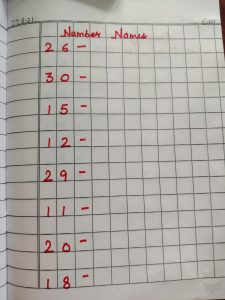 Number Names
26 -
30 -
15 -
12 -
29 -
11 -
20 -
18 -